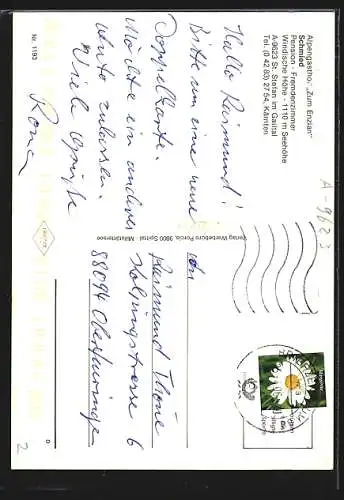 Alpengasthof „Zum Enzian"
Schmied
Pension - Fremdenzimmer
Windische Höhe - 1110 m Seehöhe
A-9623 St. Stefan im Gailtal
Tel. (0 42 83) 27 54, Kärnten
Hallo Raimund!
Bitte um eine neue
Doppelkarte.
Möchte ein anderes
Viele Grüße
Nr. 1193
Verlag Werbebüro Porcia, 9800 Spittal - Millstättersee
An
Raimund Thöne
6
88094 Oberteuringen
A-9623
2